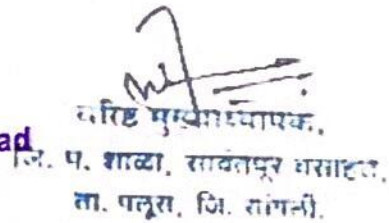 वरिष्ठ मुख्याध्यापक,
ad
जि. प. शाळा, सावंतपूर वसाहत,
ता. पलूस, जि. सांगली.